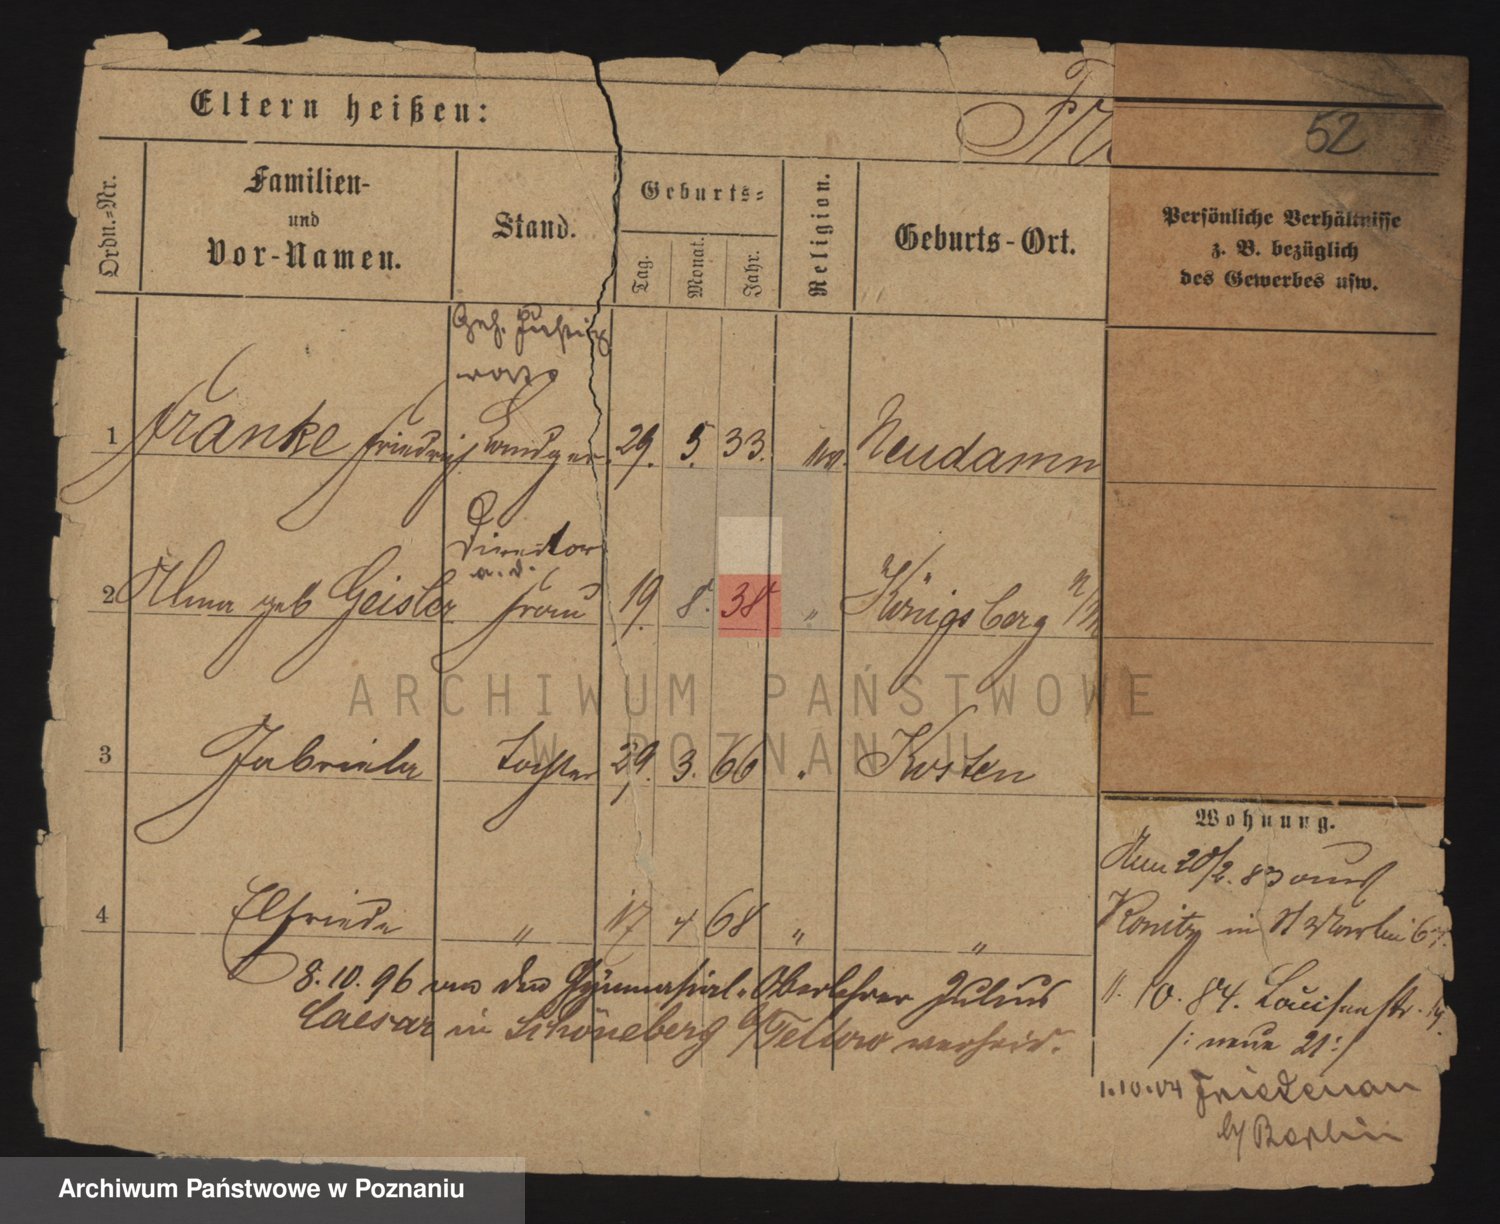 Eltern heißen:
Fra
52
Ordn.-Nr.
Familien-
und
Vor-Namen.
Stand.
Geburts-
Tag.
Monat.
Jahr.
Religion.
Geburts-Ort.
Persönliche Verhältnisse
z. B. bezüglich
des Gewerbes usw.
Geh. Justiz
rat
1 Franke Friedrich Landger. 29. 5. 33. ev. Neudamm
Director
a. D.
2 Alma geb Geisler Frau 19. 8. 38 " Königsberg N/M
3 Gabriela Tochter 29. 3. 66 " Kosten
4 Elfriede " 17 4 68 " "
8.10.96 an den Gymnasial-Oberlehrer Julius
Caesar in Schöneberg b/Teltow verheir.
Wohnung.
Am 20/2. 83 aus
Konitz in St Martin 67.
11. 10. 84. Louisenstr. 14.
/: neue 21 :/
1.10.04 Friedenau
b/ Berlin
ARCHIWUM PAŃSTWOWE
W POZNANIU
Archiwum Państwowe w Poznaniu